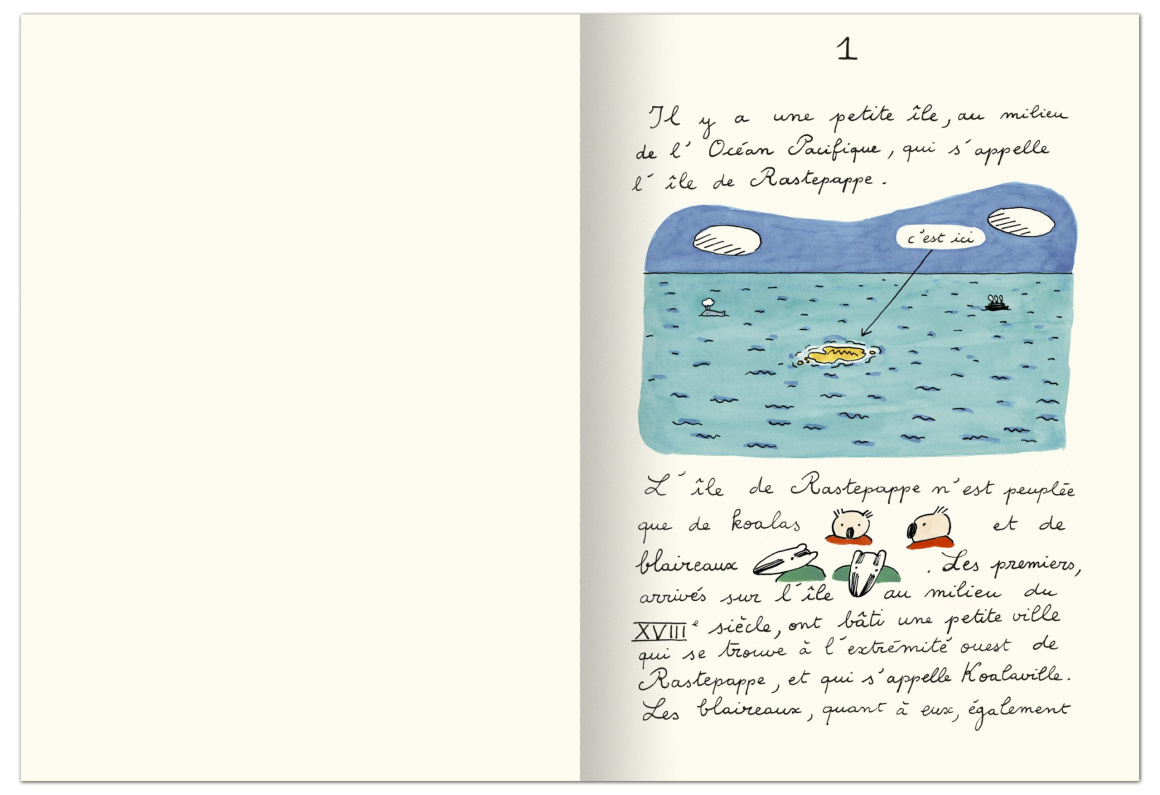 1
Il y a une petite île, au milieu
de l' Océan Pacifique, qui s'appelle
l' île de Rastepappe.
c'est ici
L'île de Rastepappe n'est peuplée
que de koalas et de
blaireaux . Les premiers,
arrivés sur l'île au milieu du
XVIIIe siècle, ont bâti une petite ville
qui se trouve à l'extrémité ouest de
Rastepappe, et qui s'appelle Koalaville.
Les blaireaux, quant à eux, également